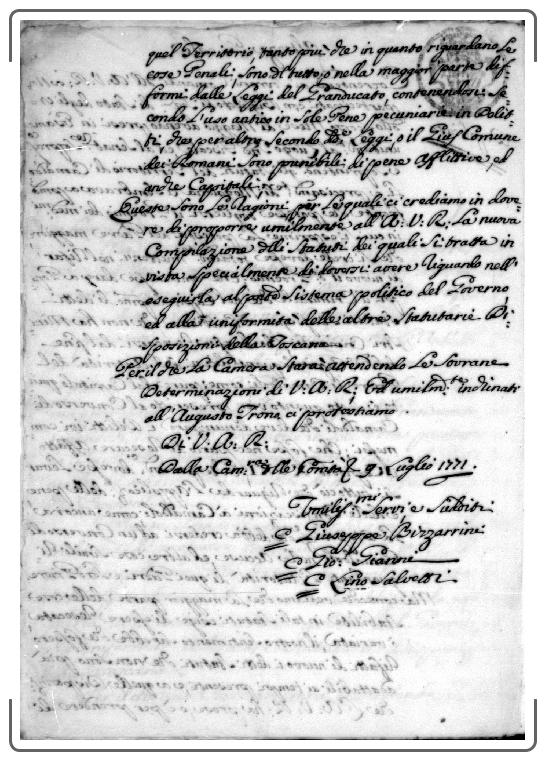 quel Territorio, tanto più che in quanto riguardano le
cose Penali sono di tutto, o nella maggior parte dif=
formi dalle Leggi del Granducato, contenendosi se=
condo l'uso antico in sole Pene pecuniarie in Delit=
ti, che per altro secondo de. Leggi o il Gius Comune
dei Romani sono punibili di pene Afflittive, ed
anche Capitali.
Queste sono le Ragioni per le quali ci crediamo in dove=
re di proporre umilmente all'A: V: R: la nuova
Compilazione dlli Statuti dei quali si tratta in
vista specialmente di doversi avere riguardo nell'
eseguirla al pnte sistema politico del Governo,
ed alla uniformità delle altre Statutarie Di=
sposizioni della Toscana.
Per il che la Camera starà attendendo le Sovrane
Determinazioni di V: A: R: ed umilm.te inchinati
all'Augusto Trono ci protestiamo.
Di V: A: R:
Dalla Cam.ra dlle Comità li 9: Luglio 1771.
Umiliss.mi Servi e Sudditi
Giuseppe Bizzarrini
Gio: Giannini
Lino Salvetti